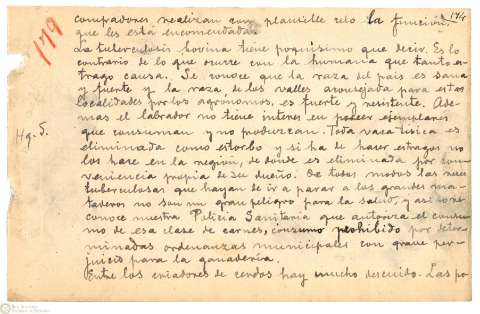 174
179
compradores realizan muy plausible celo la función
que les está encomendada.
La tuberculosis bovina tiene poquísimo que decir. Es lo
contrario de lo que ocurre con la humana que tanto es-
trago causa. Se conoce que la raza del pais es sana
y fuerte y la raza, de los valles aconsejada para estas
localidades por los agronomos, es fuerte y resistente. Ade-
mas el labrador no tiene interes en poseer ejemplares
que consuman y no produzcan. Toda vaca tisica es
Hg-5.
eliminada como estorbo y si ha de hacer estragos no
los hace en la región, de donde es eliminada por con-
veniencia propia de su dueño. De todos modos las reses
tuberculosas que hayan de ir a parar a los grandes mata-
deros no son un gran peligro para la salud, y asi lo re-
conoce nuestra Policía Sanitaria que autoriza el consu-
mo de esa clase de carnes, consumo prohibido por deter-
minadas ordenanzas municipales con grave per-
juicio para la ganadería.
Entre los criadores de cerdos hay mucho descuido. Las po-